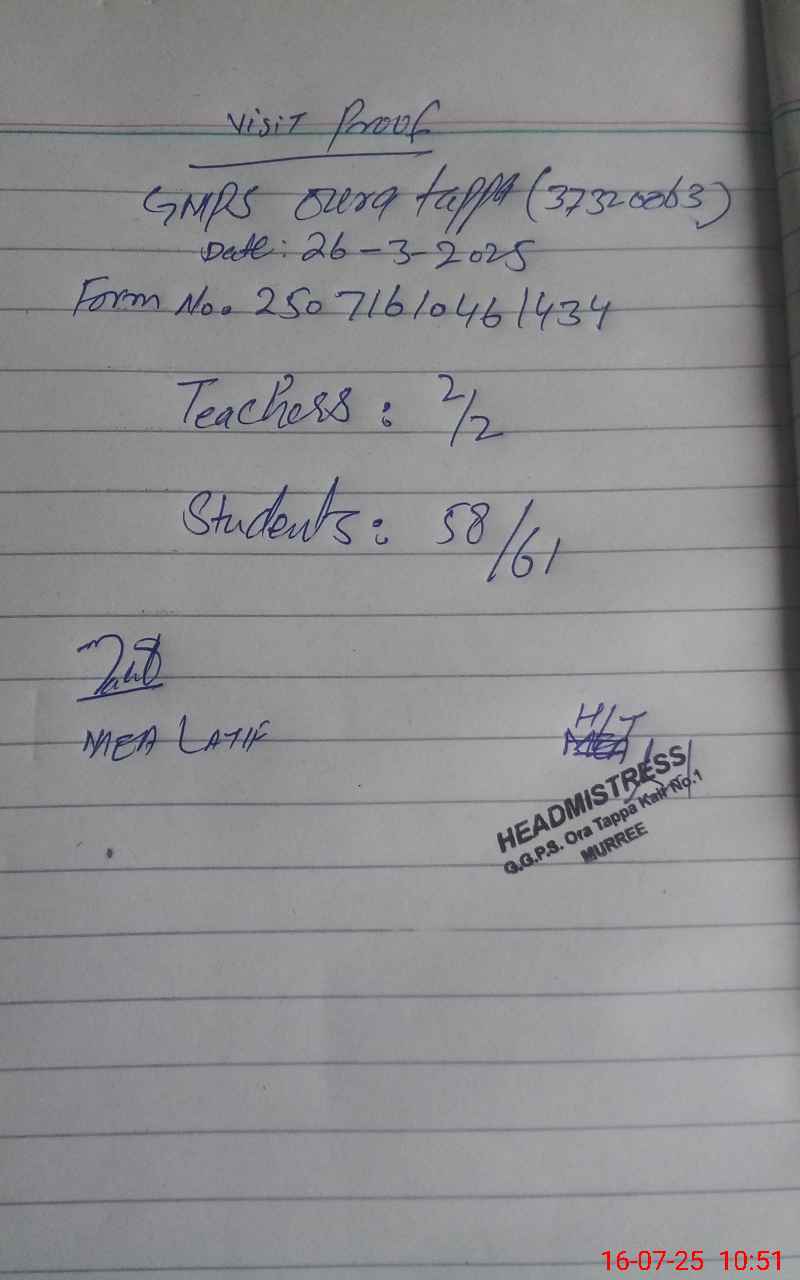 Visit Proof
GMPS oura tappa (37320063)
Date: 26-3-2025
Form No. 25071610461434
Teachers: 2/2
Students: 58/61
MEA LATIF
H/T
HEADMISTRESS
G.G.P.S. Ora Tappa Kair No.1
MURREE
16-07-25 10:51